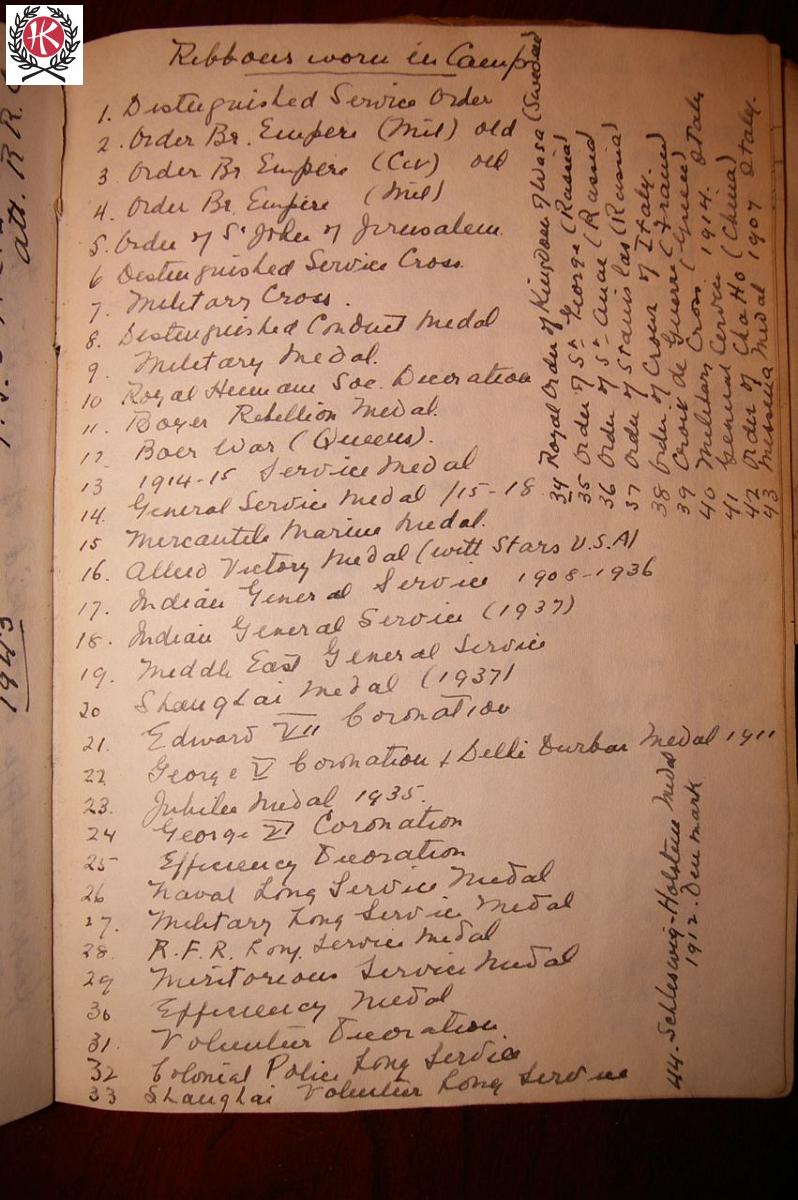 HK
Ribbons worn in Camp
1. Distinguished Service Order
2. Order Br. Empire (Mil) old
3 Order Br Empire (Civ) old
4. Order Br. Empire (Mil)
5. Order of St John of Jerusalem
6 Distinguished Service Cross
7. Military Cross.
8. Distinguished Conduct Medal
9. Military Medal.
10 Royal Humane Soc. Decoration
11. Boxer Rebellion Medal.
12. Boer War (Queens).
13 1914-15 Service Medal
14. General Service Medal /15-18
15 Mercantile Marine Medal.
16. Allied Victory Medal (with Stars U.S.A)
17. Indian General Service 1908-1936
18. Indian General Service (1937)
19. Middle East General Service
20 Shanghai Medal (1937)
21. Edward VII Coronation
22 George V Coronation & Delhi Durbar Medal 1911
23. Jubilee Medal 1935.
24 George VI Coronation
25 Efficiency Decoration
26 Naval Long Service Medal
27. Military Long Service Medal
28. R.F.R. Long Service Medal
29 Meritorious Service Medal
30 Efficiency Medal
31. Volunteer Decoration.
32 Colonial Police Long Service
33 Shanghai Volunteer Long Service
34 Royal Order of Kingdom of Wasa (Sweden)
35 Order of St George (Russia)
36 Order of St Anne (Russia)
37 Order of Stanislas (Russia)
38 Order of Crown of Italy.
39 Croix de Guerre (France)
40 Military Cross 1914. Italy
41 General Service (China)
42 Order of Cha Ho (China)
43 Messina Medal 1907 Italy.
44. Schleswig-Holstein Medal
1912. Denmark
1943
att. R.R.